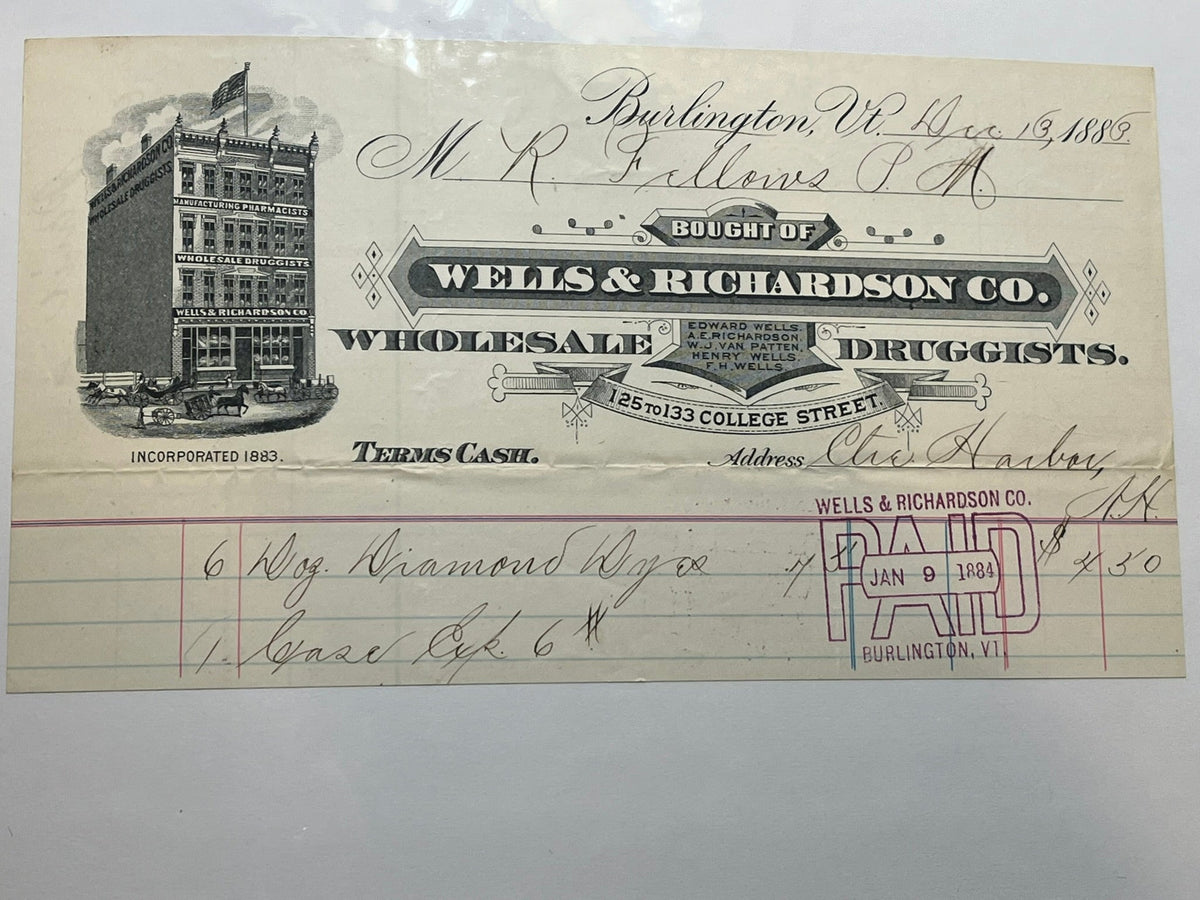 Burlington, Vt. Dec. 13, 1883.
M R. Fellows P. M.
WELLS & RICHARDSON CO.
WHOLESALE DRUGGISTS
MANUFACTURING PHARMACISTS
WHOLESALE DRUGGISTS
WELLS & RICHARDSON CO.
BOUGHT OF
WELLS & RICHARDSON CO.
WHOLESALE DRUGGISTS.
EDWARD WELLS.
A.E. RICHARDSON.
W.J. VAN PATTEN.
HENRY WELLS.
F.H. WELLS.
125 TO 133 COLLEGE STREET.
INCORPORATED 1883.
TERMS CASH.
Address Ctre. Harbor,
N.H.
WELLS & RICHARDSON CO.
PAID
JAN 9 1884
BURLINGTON, VT.
6 Doz. Diamond Dyes $ 4 30
1 Case Exp. 6 #